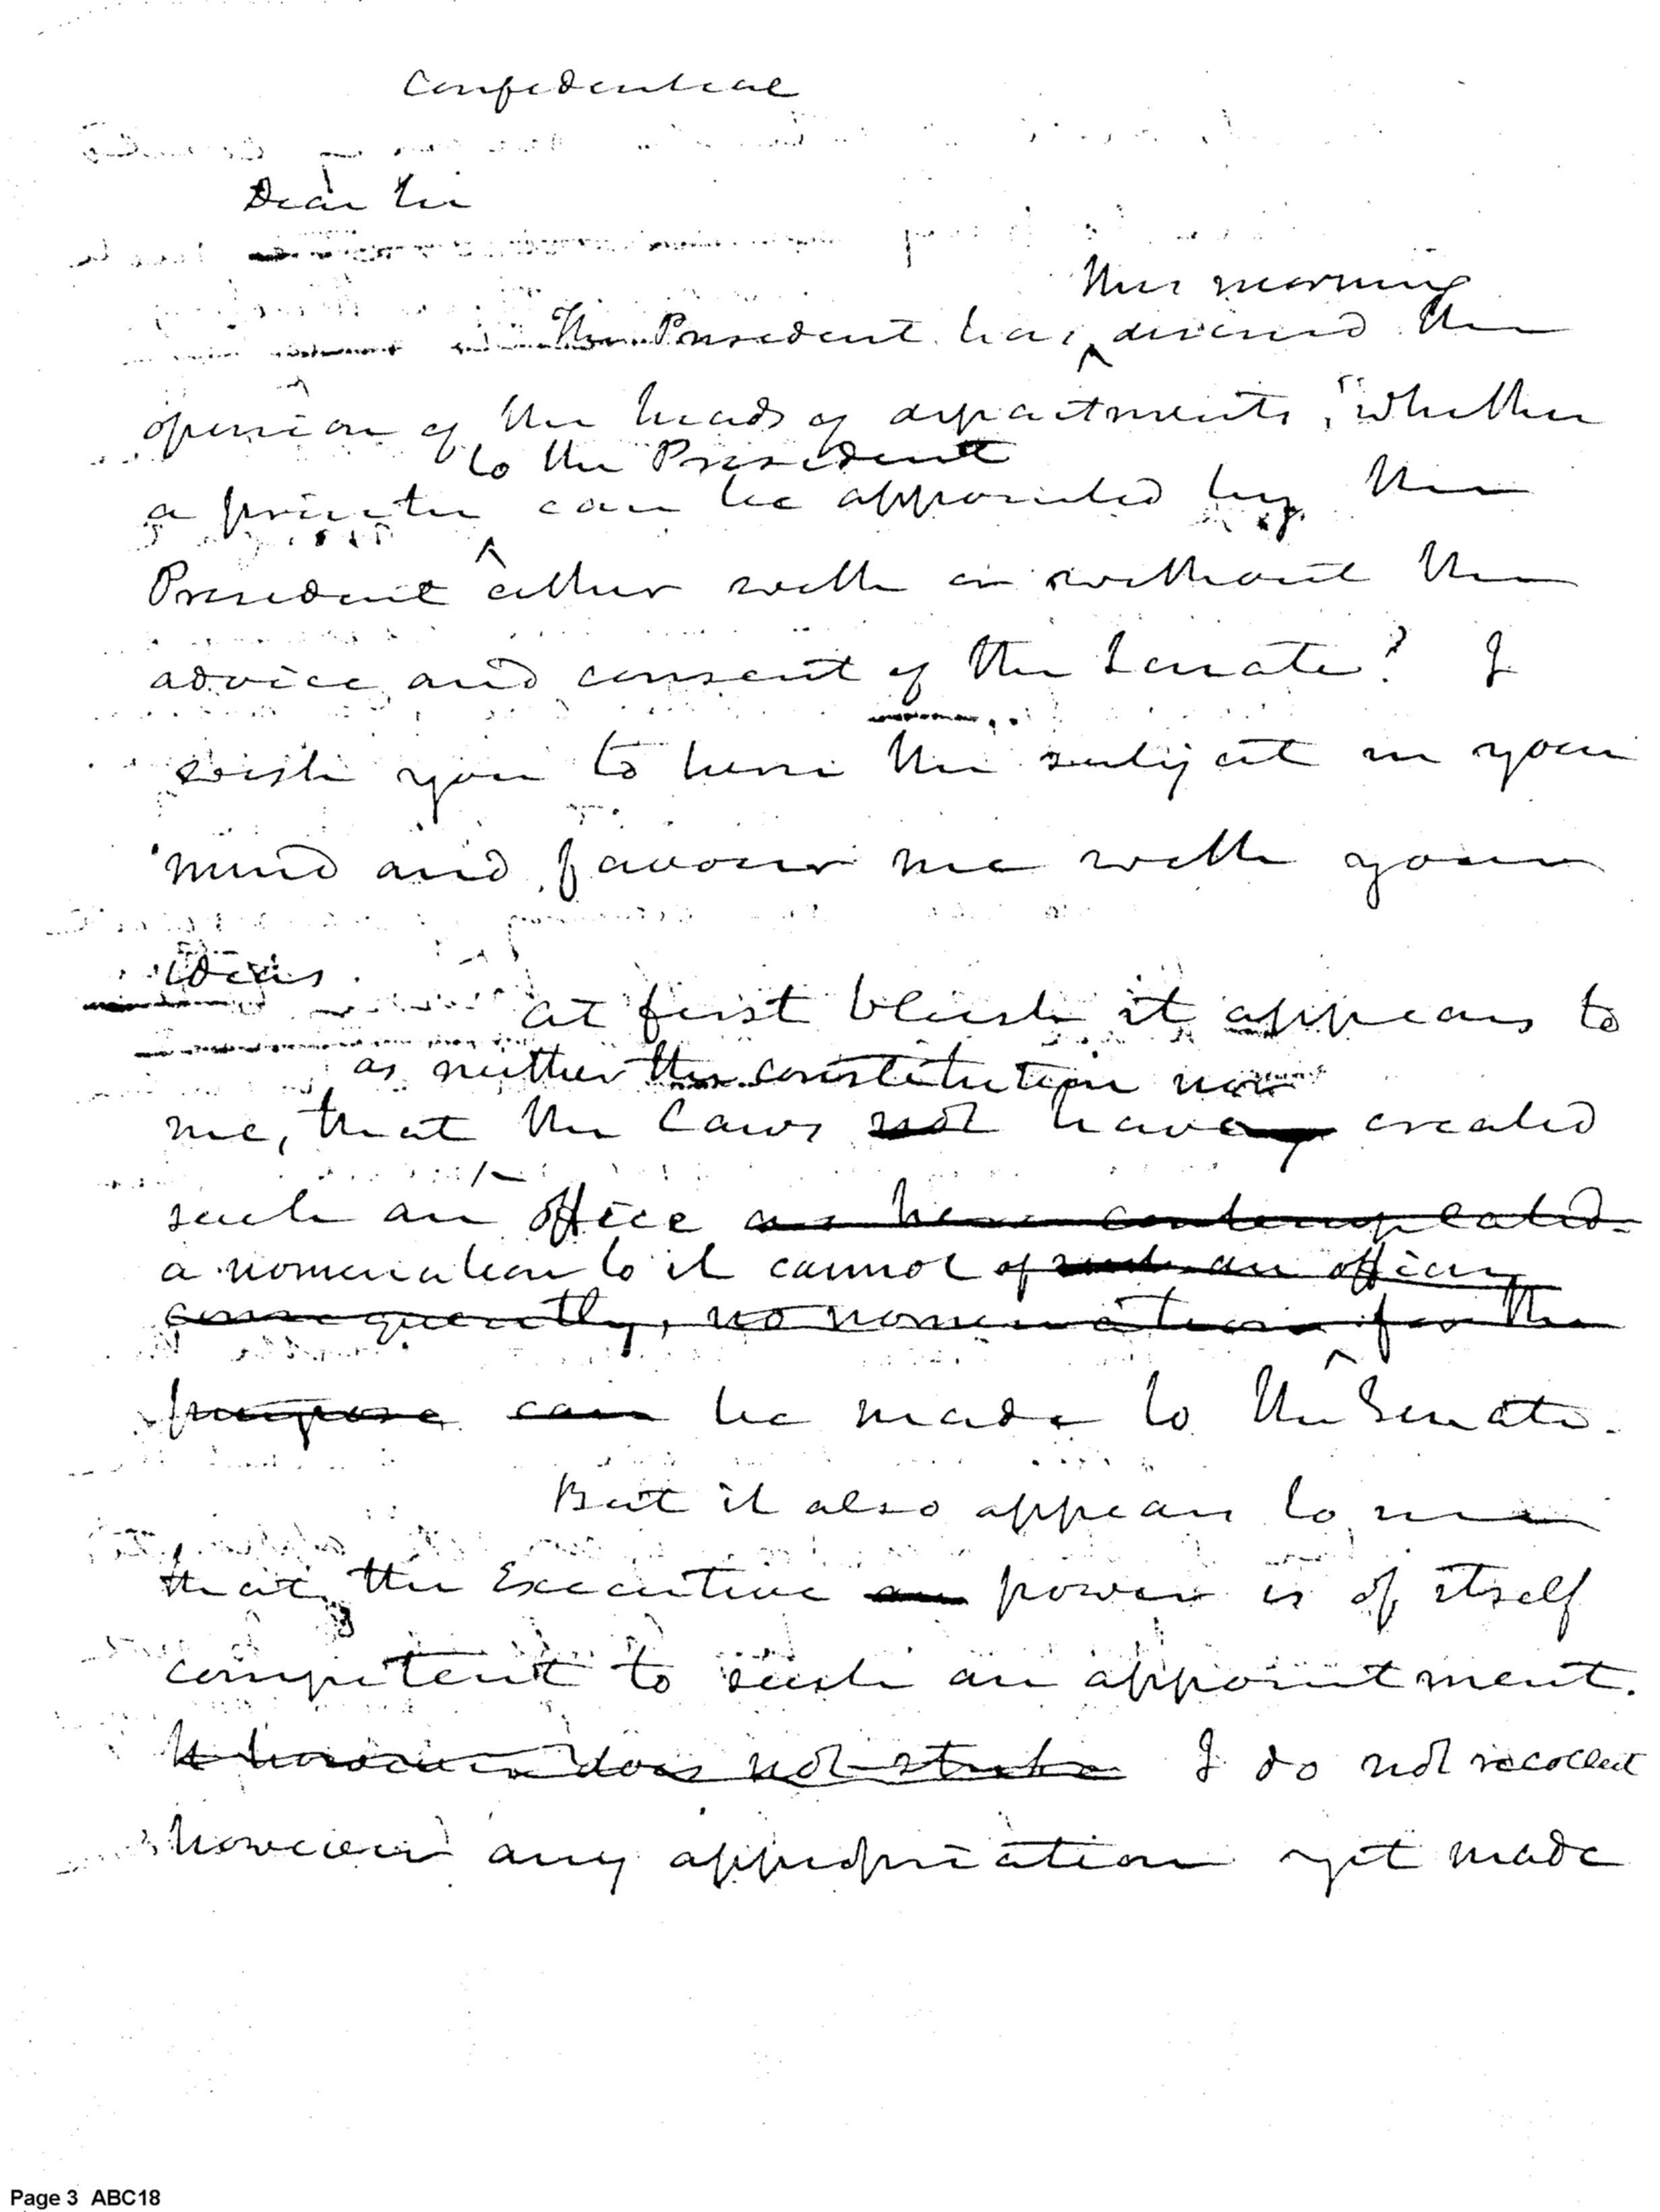 Confidential
Dear Sir
this morning
The President has desired the
opinion of the heads of departments, "whether
to the President
a printer can be appointed by the
President either with or without the
advice and consent of the Senate? I
wish you to turn the subject in your
mind and favour me with your
ideas.
at first blush it appears to
as neither the constitution nor
me, that the Laws not having created
such an office as here contemplated
a nomination to it cannot of such an officer
consequently, no nomination for the
purpose can be made to the Senate.
But it also appears to me
that the Executive power is of itself
competent to such an appointment.
It however does not strike I do not recollect
however any appropriation yet made
Page 3 ABC18